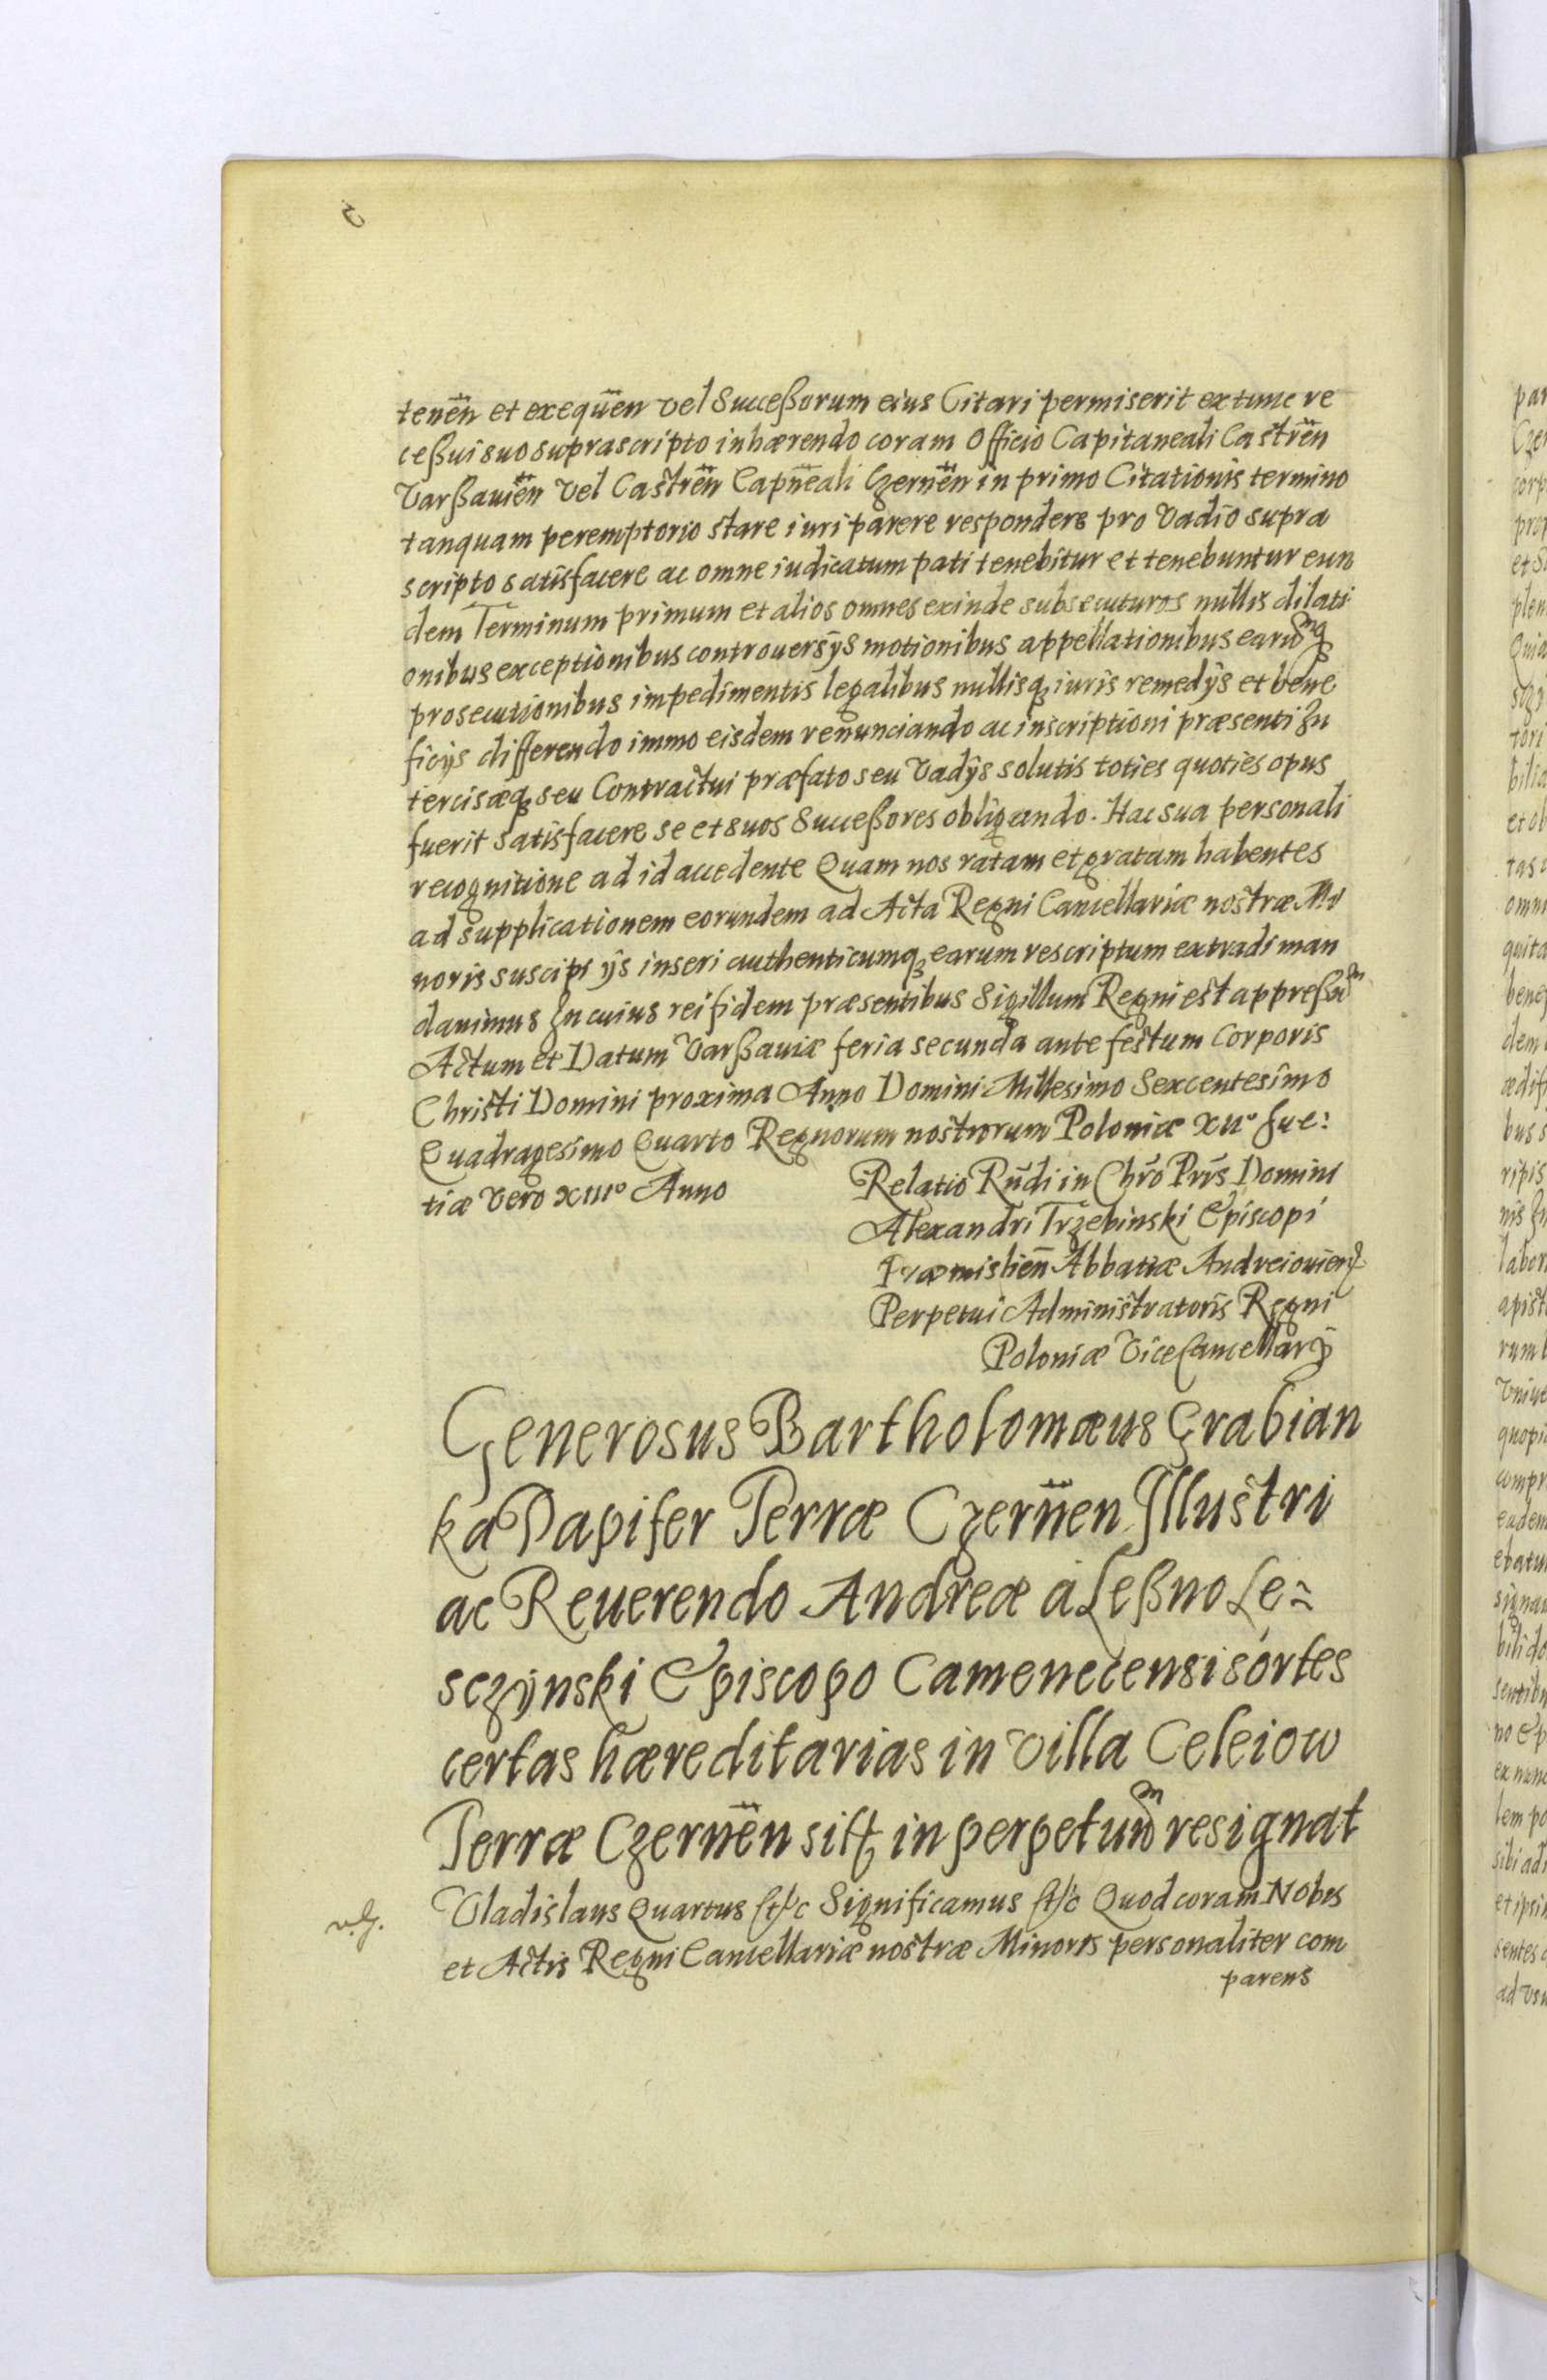 tenen̄ et exequen̄ vel Succeßorum eius Citari permiserit ex tunc re
ceßui suo suprascripto inhærendo coram Officio Capitaneali Castren̄
Varßavien̄ vel Castren̄ Capn̄eali Czernen̄ in primo Citationis termino
tanquam peremptorio stare iuri parere respondere pro Vadio supra
scripto satisfacere ac omne iudicatum pati tenebitur et tenebuntur eun
dem Terminum primum et alios omnes exinde subsecuturos nullis dilati
onibus exceptionibus controuersÿs motionibus appellationibus earumqꝫ
prosecutionibus impedimentis legalibus nullisqꝫ iuris remedÿs et bene
ficÿs differendo immo eisdem renunciando ac inscriptioni præsenti In
tercisæqꝫ seu Contractui præfato seu Vadÿs solutis toties quoties opus
fuerit satisfacere se et suos Succeßores obligando. Hac sua personali
recognitione ad id accedente Quam nos ratam et gratam habentes
ad supplicationem eorundem ad Acta Regni Cancellariæ nostræ Mi
noris suscipi ÿs inseri authenticumqꝫ earum rescriptum extradi man
dauimus In cuius rei fidem præsentibus Sigillum Regni est appreßum
Actum et Datum Varßauiæ feria secunda ante festum Corporis
Christi Domini proxima Anno Domini Millesimo Sexcentesimo
Quadragesimo Quarto Regnorum nostrorum Poloniæ XIIº Sue:
tiæ Vero XIIIº Anno
Relatio Rn̄di in Chr̄o Pr̄is Domini
Alexandri Trzebinski Episcopi
Præmislien̄ Abbatiæ Andreiouien̄
Perpetui Administratoris Regni
Poloniæ ViceCancellarÿ
Generosus Bartholomæus Grabian
ka Dapifer Terræ Czernen̄ Illustri
ac Reuerendo Andreæ á Leßno Le=
sczÿnski Episcopo Camenecensi sórtes
certas hæreditarias in Villa Celeiow
Terræ Czernen̄ sitt in perpetuum resignat
Vladislaus Quartus etc Significamus etc Quod coram Nobis
et Actis Regni Cancellariæ nostræ Minoris personaliter com
parens